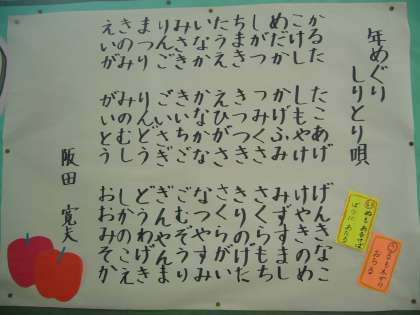 年めぐり
しりとり唄
かるた　たこあげ　げんきなこ
こけし　しもやけ　けやきのめ
めだか　かげふみ　みずすまし
しがつ　つみくさ　さくらもち
ちまき　きつつき　きりのげた
たうえ　えひがさ　さくらがい
いなか　かなかな　なつやすみ
みさき　きいちご　ごむぞうり
りんご　ごいさぎ　ぎんやんま
まつり　りんどう　どうわげき
きのみ　みのむし　しかのこえ
えいが　がいとう　おおみそか
阪田　寛夫
ぬもあるけば
ぼうにあたる
るも木から
おちる